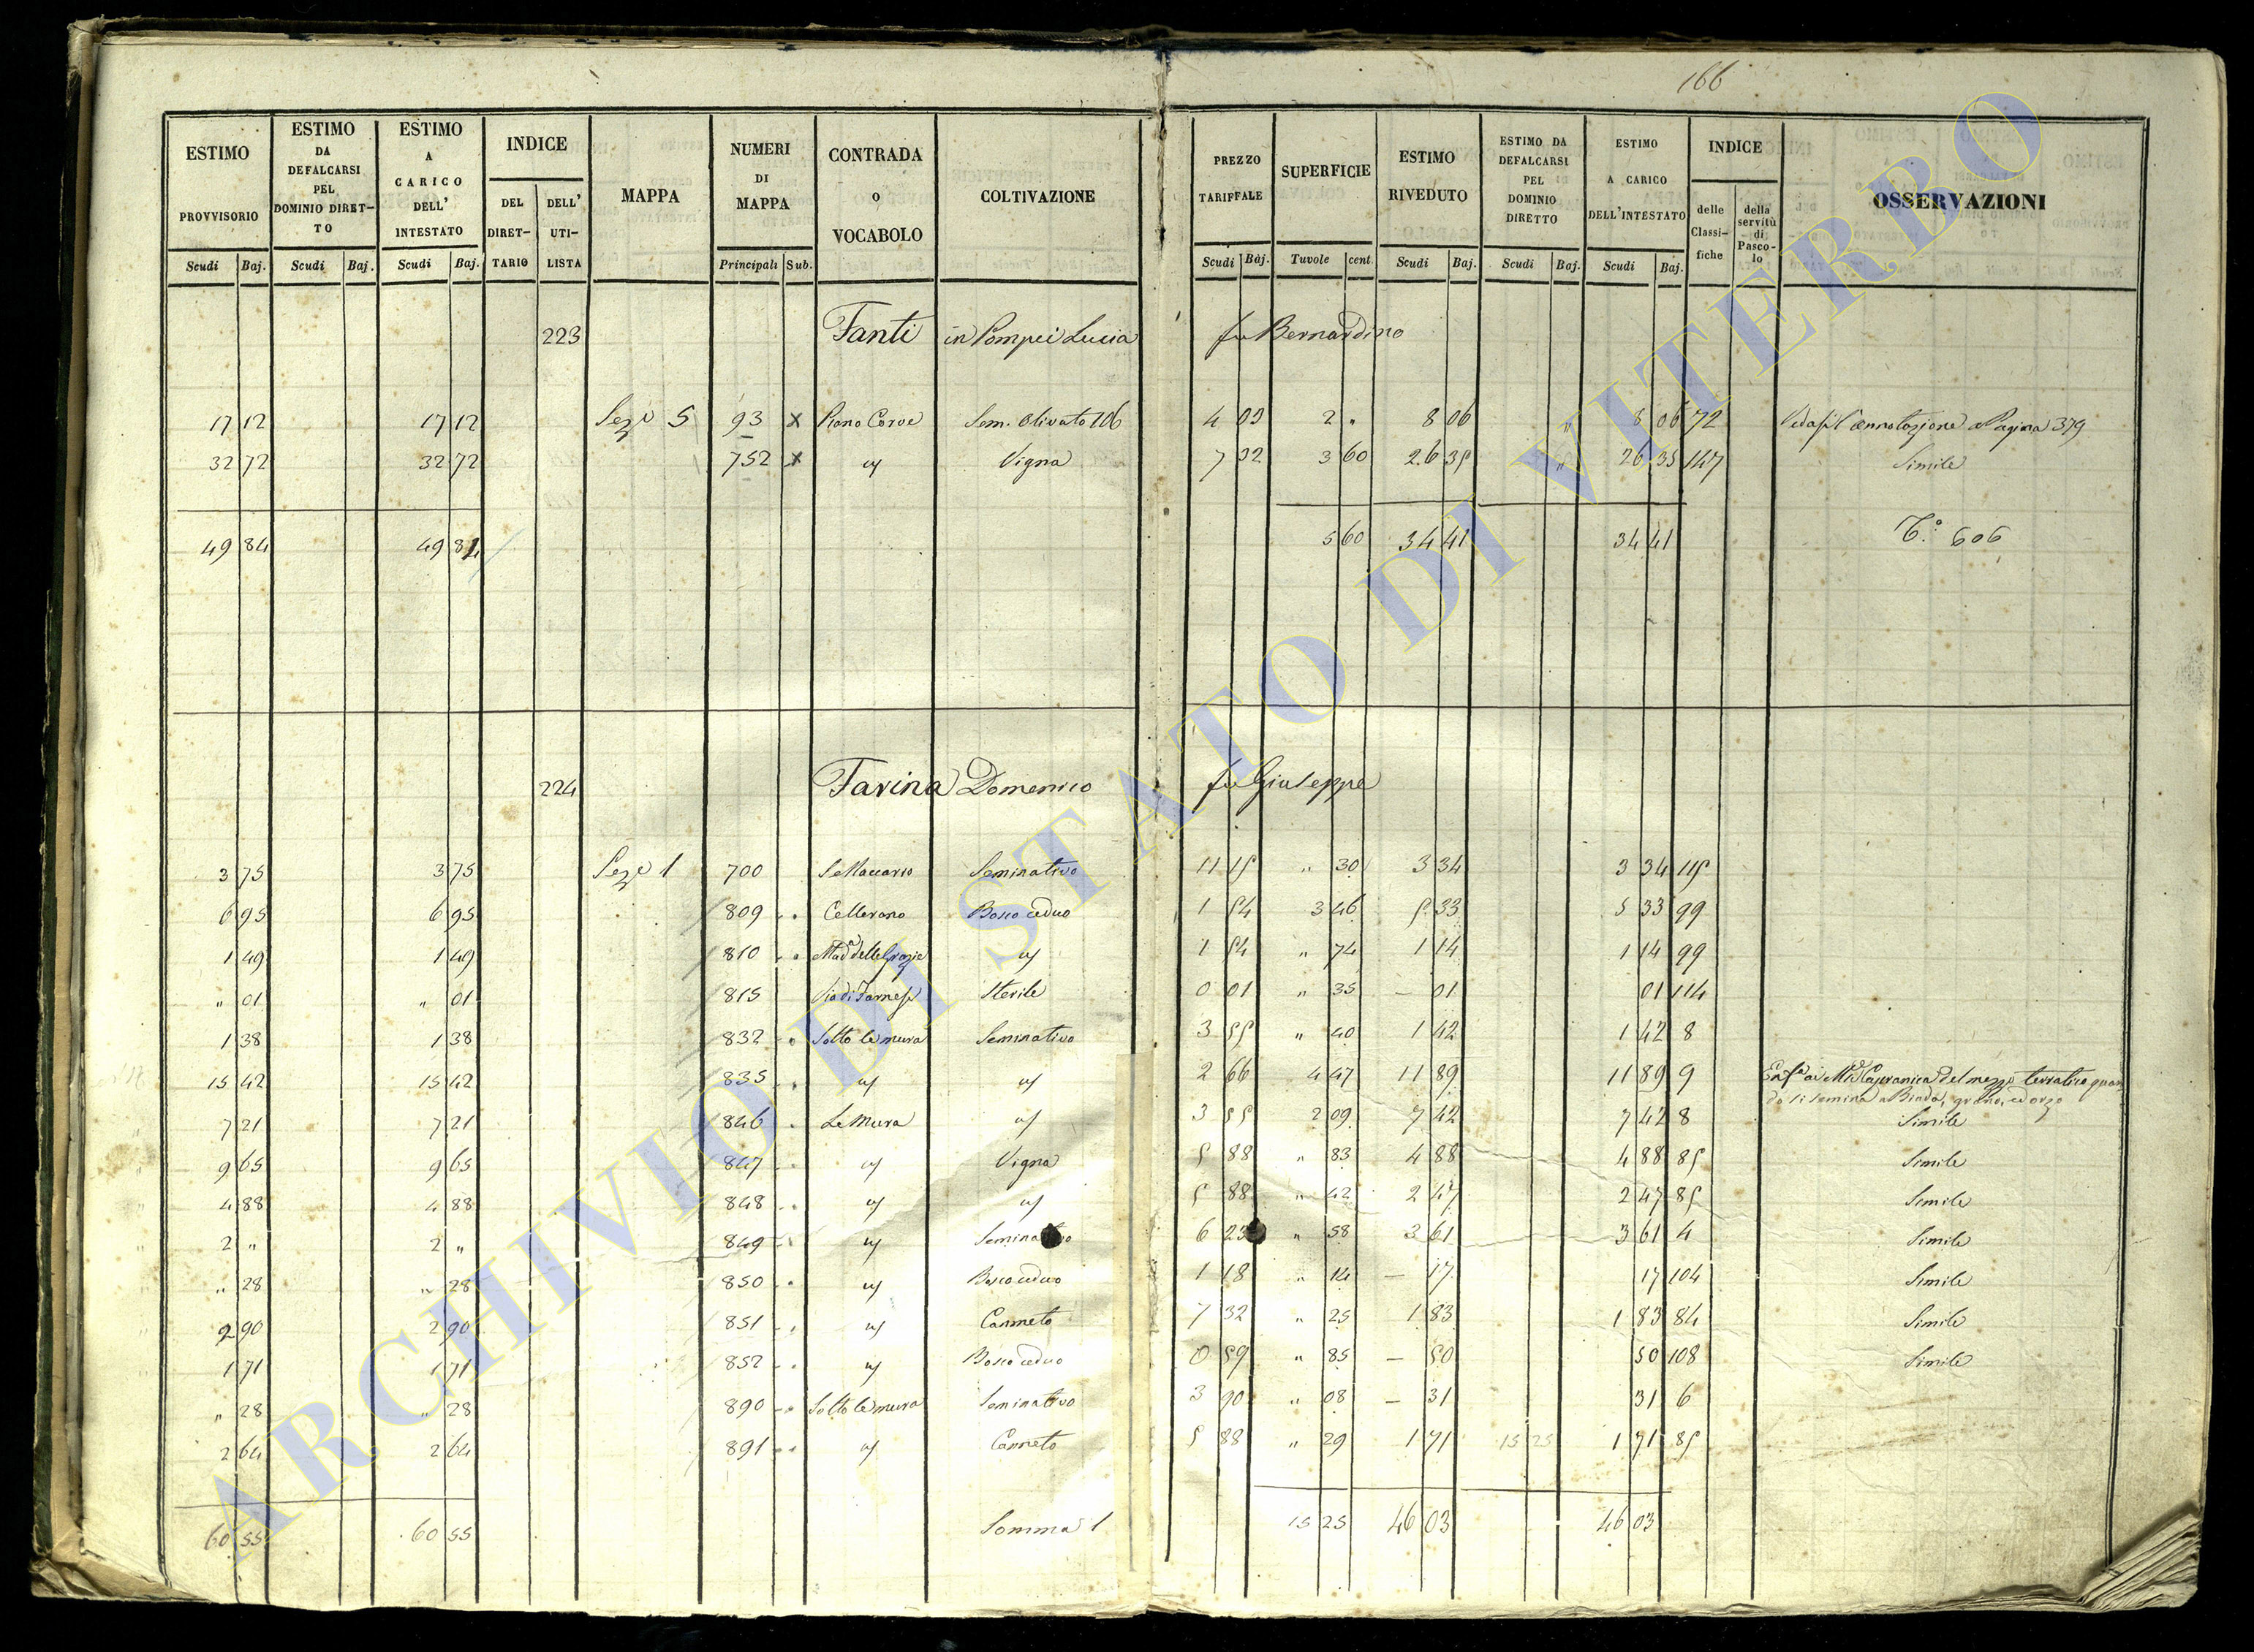 166
ESTIMO PROVVISORIO Scudi Baj. | ESTIMO DA DEFALCARSI PEL DOMINIO DIRETTO Scudi Baj. | ESTIMO A CARICO DELL' INTESTATO Scudi Baj. | INDICE DEL DIRETTARIO DELL' UTILISTA | MAPPA | NUMERI DI MAPPA Principali Sub. | CONTRADA O VOCABOLO | COLTIVAZIONE | PREZZO TARIFFALE Scudi Baj. | SUPERFICIE Tavole cent. | ESTIMO RIVEDUTO Scudi Baj. | ESTIMO DA DEFALCARSI PEL DOMINIO DIRETTO Scudi Baj. | ESTIMO A CARICO DELL'INTESTATO Scudi Baj. | INDICE delle Classifiche della servitù di Pascolo | OSSERVAZIONI
223 Fanti in Pompei Lucia fu Bernardino
17 12 17 12 Sezе 5 93 x Piano Corve Sem. Olivato 106 4 03 2 " 8 06 " 8 06 72 Vedasi l'annotazione a Pagina 379
32 72 32 72 752 x " Vigna 7 32 3 60 26 35 " 26 35 147 Simile
49 84 49 84 5 60 34 41 34 41 T.° 606
224 Farina Domenico fu Giuseppe
3 75 3 75 Seze 1 700 Seminativo 11 15 " 30 3 34 3 34 115
6 95 6 95 809 Cellerano Bosco ceduo 1 54 3 46 5 33 5 33 99
1 49 1 49 810 Mad.a delle Grazie " 1 54 " 74 1 14 1 14 99
" 01 " 01 815 Via di Farnese Sterile 0 01 " 35 – 01 01 114
1 38 1 38 832 Sotto le mura Seminativo 3 55 " 40 1 42 1 42 8
15 42 15 42 835 " " 2 66 4 47 11 89 11 89 9 del mezzo terratico quando si semina a Biada, grano, ed orzo
7 21 7 21 846 Le Mura " 3 55 2 09 7 42 7 42 8 Simile
9 65 9 65 847 " Vigna 5 88 " 83 4 88 4 88 85 Simile
4 88 4 88 848 " " 5 88 " 42 2 47 2 47 85 Simile
2 " 2 " 849 " Seminativo 6 23 " 58 3 61 3 61 4 Simile
" 28 " 28 850 " Bosco ceduo 1 18 " 14 – 17 17 104 Simile
2 90 2 90 851 " Canneto 7 32 " 25 1 83 1 83 84 Simile
1 71 1 71 852 " Bosco ceduo 0 59 " 85 – 50 50 108 Simile
" 28 " 28 890 Sotto le mura Seminativo 3 90 " 08 – 31 31 6
2 64 2 64 891 " Canneto 5 88 " 29 1 71 15 25 1 71 85
60 55 60 55 Somma 1 15 25 46 03 46 03
ARCHIVIO DI STATO DI VITERBO